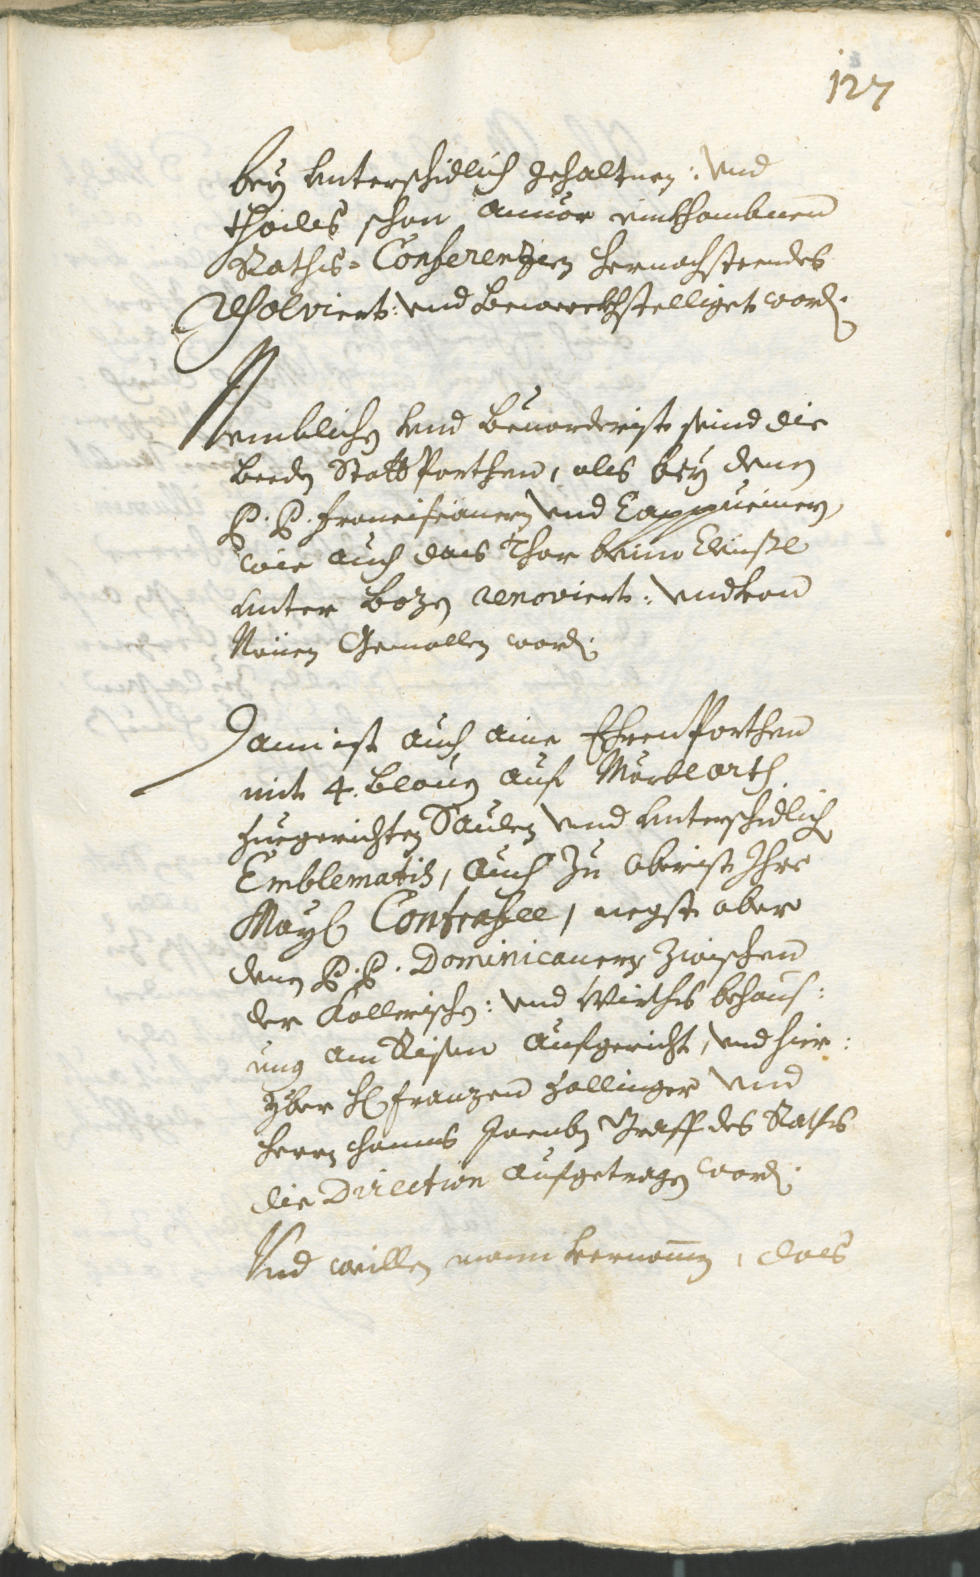 127
bey unterschidlich gehaltnen: und
thails schon anuor einkhombnen
Raths-Conferenzien hernachstendes
resolviert: und bewerckhstelliget word:
Nemblichen und beuorderist seind die
beeden Statt Porthen, als bey denen
P: P: Franciscanern und Cappucinern,
wie auch das Thor beim
unter Bozen renoviert: und von
Neuen Gemallen word:
Dann ist auch aine Ehren Porthen
mit 4. blauen auf Märblarth
zuegerichten Säulen und unterschidlich
Emblematis, auch zu oberist Ihro
May: Contrafee, negst aber
denen P: P: Dominicanern zwischen
der Kollerischen: und Wirths behaus:
ung am Risen aufgericht, und hier:
yber H: Franzen Zallinger und
Herrn Hanns Jacoben Graff des Raths
die Direction aufgetragen word:
Und weillen mann vernomen, das